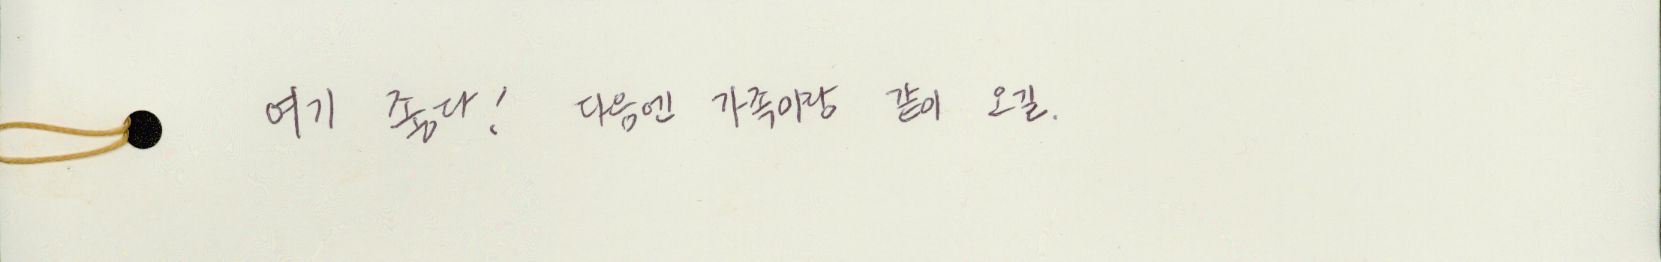 여기 좋다! 다음엔 가족이랑 같이 오길.